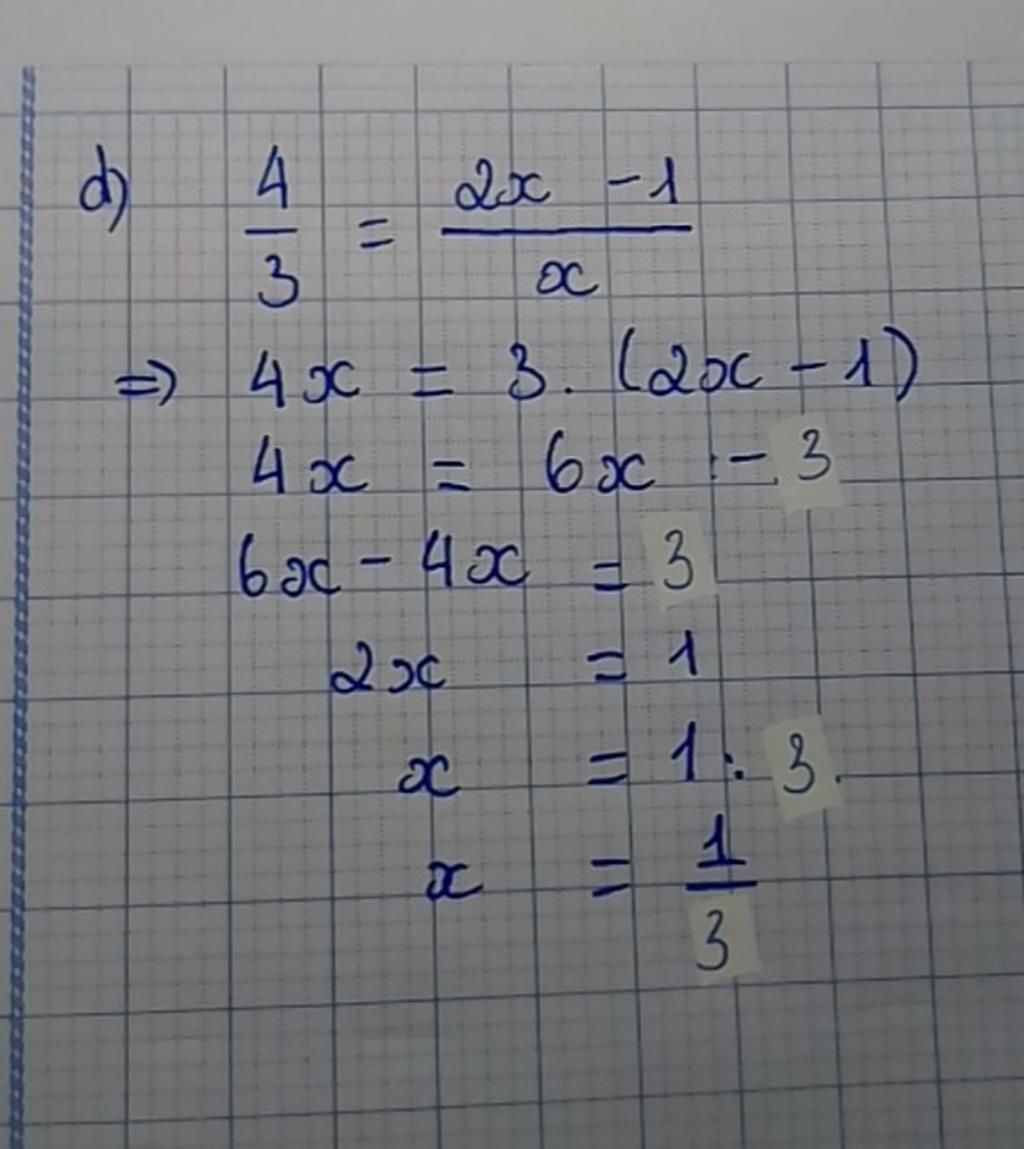 d) 4/3 = (2x - 1)/x
=> 4x = 3. (2x - 1)
4x = 6x - 3
6x - 4x = 3
2x = 1
x = 1 : 3.
x = 1/3